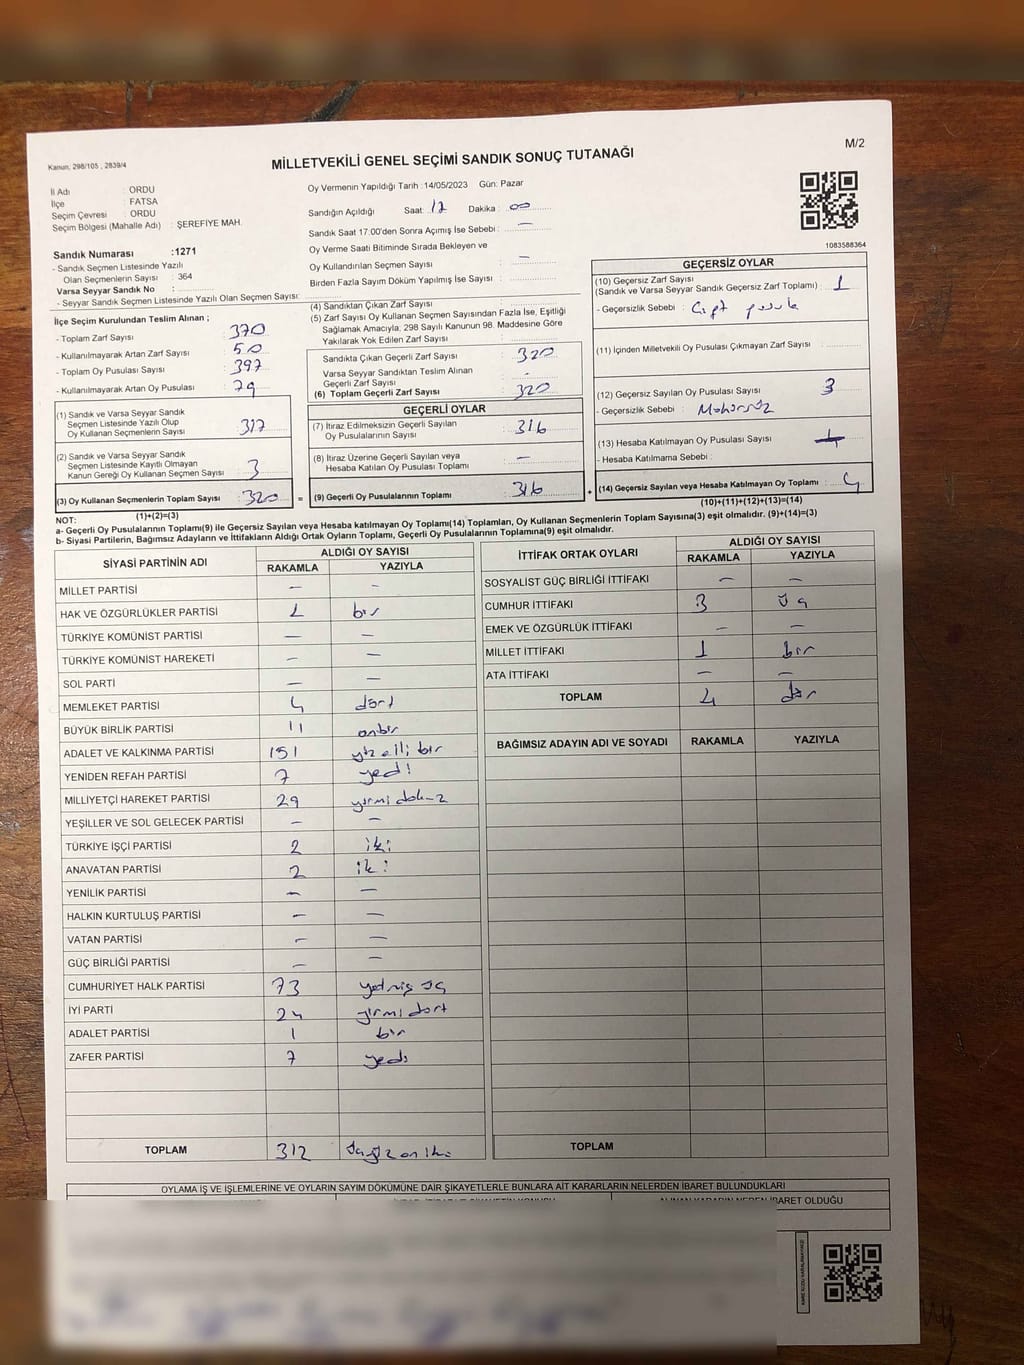 Kanun, 298/105 , 2839/4
MİLLETVEKİLİ GENEL SEÇİMİ SANDIK SONUÇ TUTANAĞI
M/2
İl Adı : ORDU
İlçe : FATSA
Seçim Çevresi : ORDU
Seçim Bölgesi (Mahalle Adı) : ŞEREFİYE MAH.
Oy Vermenin Yapıldığı Tarih :14/05/2023 Gün: Pazar
Sandığın Açıldığı Saat: 17 Dakika : 00
Sandık Saat 17:00'den Sonra Açımış İse Sebebi : —
Oy Verme Saati Bitiminde Sırada Bekleyen ve
Oy Kullandırılan Seçmen Sayısı : —
Birden Fazla Sayım Döküm Yapılmış İse Sayısı :
1083588364
Sandık Numarası :1271
- Sandık Seçmen Listesinde Yazılı
Olan Seçmenlerin Sayısı : 364
Varsa Seyyar Sandık No :
- Seyyar Sandık Seçmen Listesinde Yazılı Olan Seçmen Sayısı:
İlçe Seçim Kurulundan Teslim Alınan ;
- Toplam Zarf Sayısı : 370
- Kullanılmayarak Artan Zarf Sayısı : 50
- Toplam Oy Pusulası Sayısı : 397
- Kullanılmayarak Artan Oy Pusulası : 79
(1) Sandık ve Varsa Seyyar Sandık
Seçmen Listesinde Yazılı Olup
Oy Kullanan Seçmenlerin Sayısı : 317
(2) Sandık ve Varsa Seyyar Sandık
Seçmen Listesinde Kayıtlı Olmayan
Kanun Gereği Oy Kullanan Seçmen Sayısı : 3
(3) Oy Kullanan Seçmenlerin Toplam Sayısı : 320
(1)+(2)=(3)
(4) Sandıktan Çıkan Zarf Sayısı :
(5) Zarf Sayısı Oy Kullanan Seçmen Sayısından Fazla İse, Eşitliği
Sağlamak Amacıyla; 298 Sayılı Kanunun 98. Maddesine Göre
Yakılarak Yok Edilen Zarf Sayısı :
Sandıkta Çıkan Geçerli Zarf Sayısı : 320
Varsa Seyyar Sandıktan Teslim Alınan
Geçerli Zarf Sayısı : -
(6) Toplam Geçerli Zarf Sayısı : 320
GEÇERLİ OYLAR
(7) İtiraz Edilmeksizin Geçerli Sayılan
Oy Pusulalarının Sayısı : 316
(8) İtiraz Üzerine Geçerli Sayılan veya
Hesaba Katılan Oy Pusulası Toplamı : —
= (9) Geçerli Oy Pusulalarının Toplamı : 316 +
GEÇERSİZ OYLAR
(10) Geçersiz Zarf Sayısı
(Sandık ve Varsa Seyyar Sandık Geçersiz Zarf Toplamı) : 1
- Geçersizlik Sebebi : Çift pusula
(11) İçinden Milletvekili Oy Pusulası Çıkmayan Zarf Sayısı :
(12) Geçersiz Sayılan Oy Pusulası Sayısı : 3
- Geçersizlik Sebebi : Mühürsüz
(13) Hesaba Katılmayan Oy Pusulası Sayısı :
- Hesaba Katılmama Sebebi :
(14) Geçersiz Sayılan veya Hesaba Katılmayan Oy Toplamı : 4
(10)+(11)+(12)+(13)=(14)
NOT:
a- Geçerli Oy Pusulalarının Toplamı(9) ile Geçersiz Sayılan veya Hesaba katılmayan Oy Toplamı(14) Toplamları, Oy Kullanan Seçmenlerin Toplam Sayısına(3) eşit olmalıdır. (9)+(14)=(3)
b- Siyasi Partilerin, Bağımsız Adayların ve İttifakların Aldığı Ortak Oyların Toplamı, Geçerli Oy Pusulalarının Toplamına(9) eşit olmalıdır.
SİYASİ PARTİNİN ADI ALDIĞI OY SAYISI
RAKAMLA YAZIYLA
MİLLET PARTİSİ — —
HAK VE ÖZGÜRLÜKLER PARTİSİ 1 bir
TÜRKİYE KOMÜNİST PARTİSİ — —
TÜRKİYE KOMÜNİST HAREKETİ — —
SOL PARTİ — —
MEMLEKET PARTİSİ 4 dört
BÜYÜK BİRLİK PARTİSİ 11 onbir
ADALET VE KALKINMA PARTİSİ 151 yüz elli bir
YENİDEN REFAH PARTİSİ 7 yedi
MİLLİYETÇİ HAREKET PARTİSİ 29 yirmi dokuz
YEŞİLLER VE SOL GELECEK PARTİSİ — —
TÜRKİYE İŞÇİ PARTİSİ 2 iki
ANAVATAN PARTİSİ 2 iki
YENİLİK PARTİSİ — —
HALKIN KURTULUŞ PARTİSİ — —
VATAN PARTİSİ — —
GÜÇ BİRLİĞİ PARTİSİ — —
CUMHURİYET HALK PARTİSİ 73 yetmiş üç
İYİ PARTİ 24 yirmi dört
ADALET PARTİSİ 1 bir
ZAFER PARTİSİ 7 yedi
TOPLAM 312
İTTİFAK ORTAK OYLARI ALDIĞI OY SAYISI
RAKAMLA YAZIYLA
SOSYALİST GÜÇ BİRLİĞİ İTTİFAKI — —
CUMHUR İTTİFAKI 3 üç
EMEK VE ÖZGÜRLÜK İTTİFAKI — —
MİLLET İTTİFAKI 1 bir
ATA İTTİFAKI — —
TOPLAM 4
BAĞIMSIZ ADAYIN ADI VE SOYADI RAKAMLA YAZIYLA
TOPLAM
OYLAMA İŞ VE İŞLEMLERİNE VE OYLARIN SAYIM DÖKÜMÜNE DAİR ŞİKAYETLERLE BUNLARA AİT KARARLARIN NELERDEN İBARET BULUNDUKLARI
ALINAN KARARIN NEDEN İBARET OLDUĞU